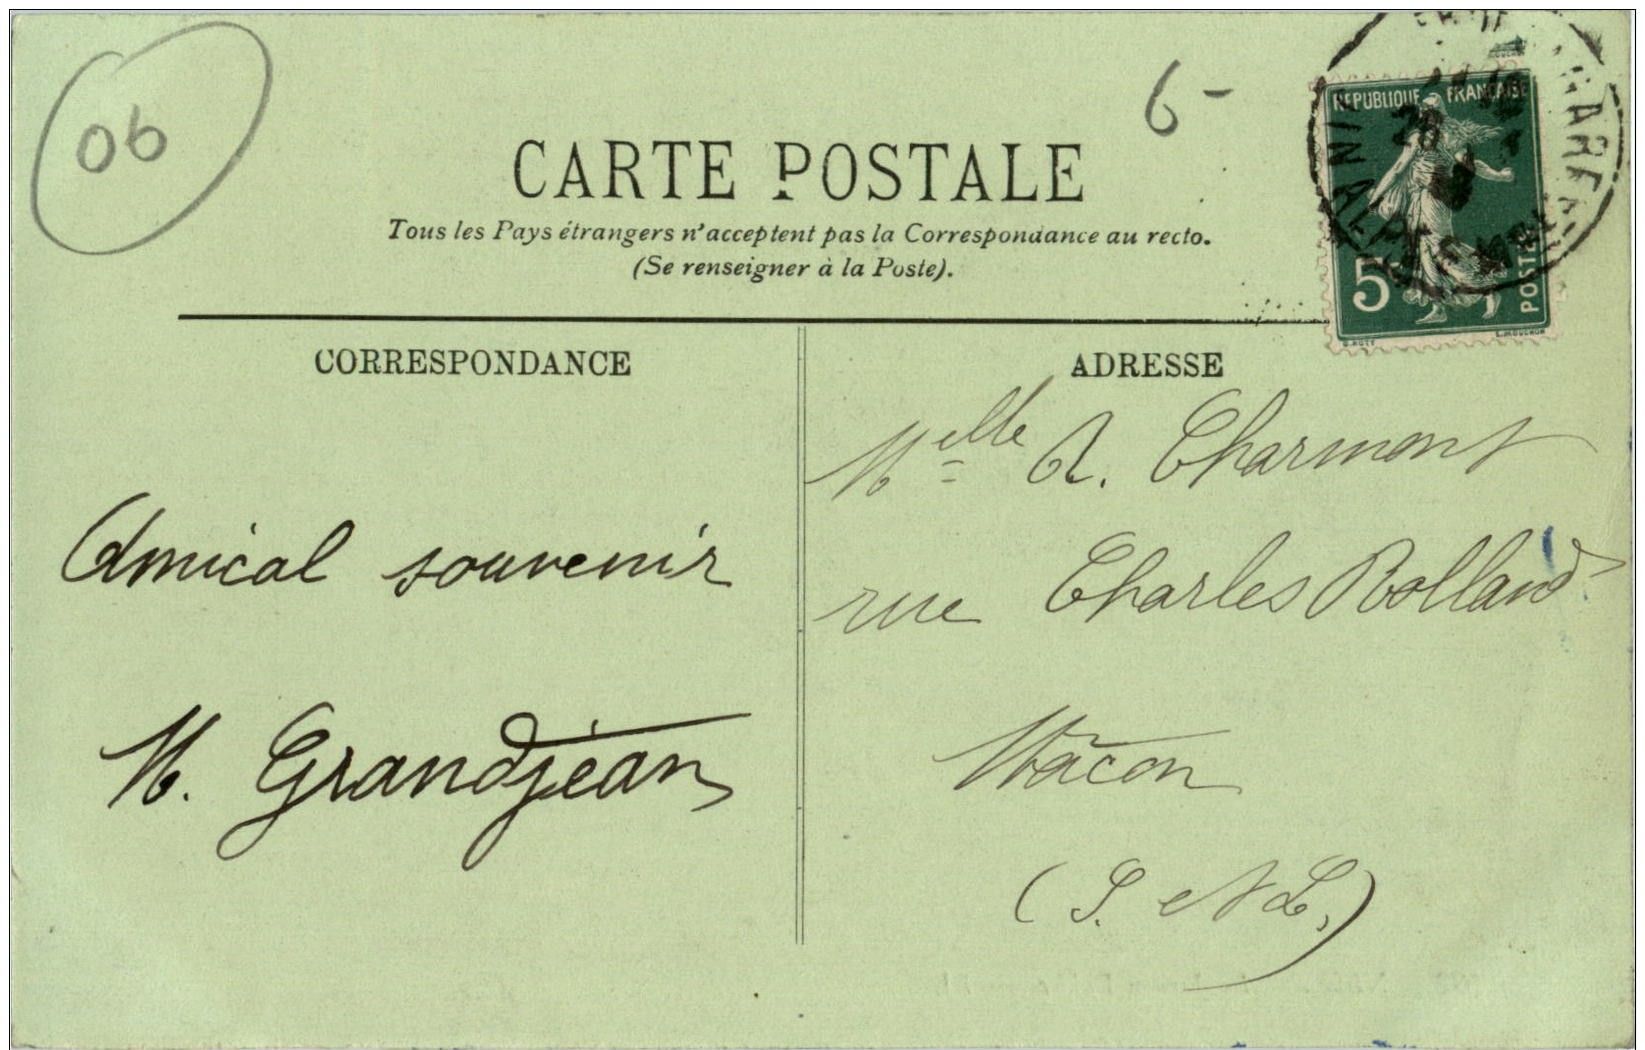 06
6-
CARTE POSTALE
Tous les Pays étrangers n'acceptent pas la Correspondance au recto.
(Se renseigner à la Poste).
REPUBLIQUE FRANÇAISE
28
5c
POSTES
O. ROTY
E. MOUCHON
GARE
ALPES
CORRESPONDANCE
Amical souvenir
M. Grandjean
ADRESSE
Melle A. Charmont
rue Charles Rolland
Mâcon
(S. et L.)